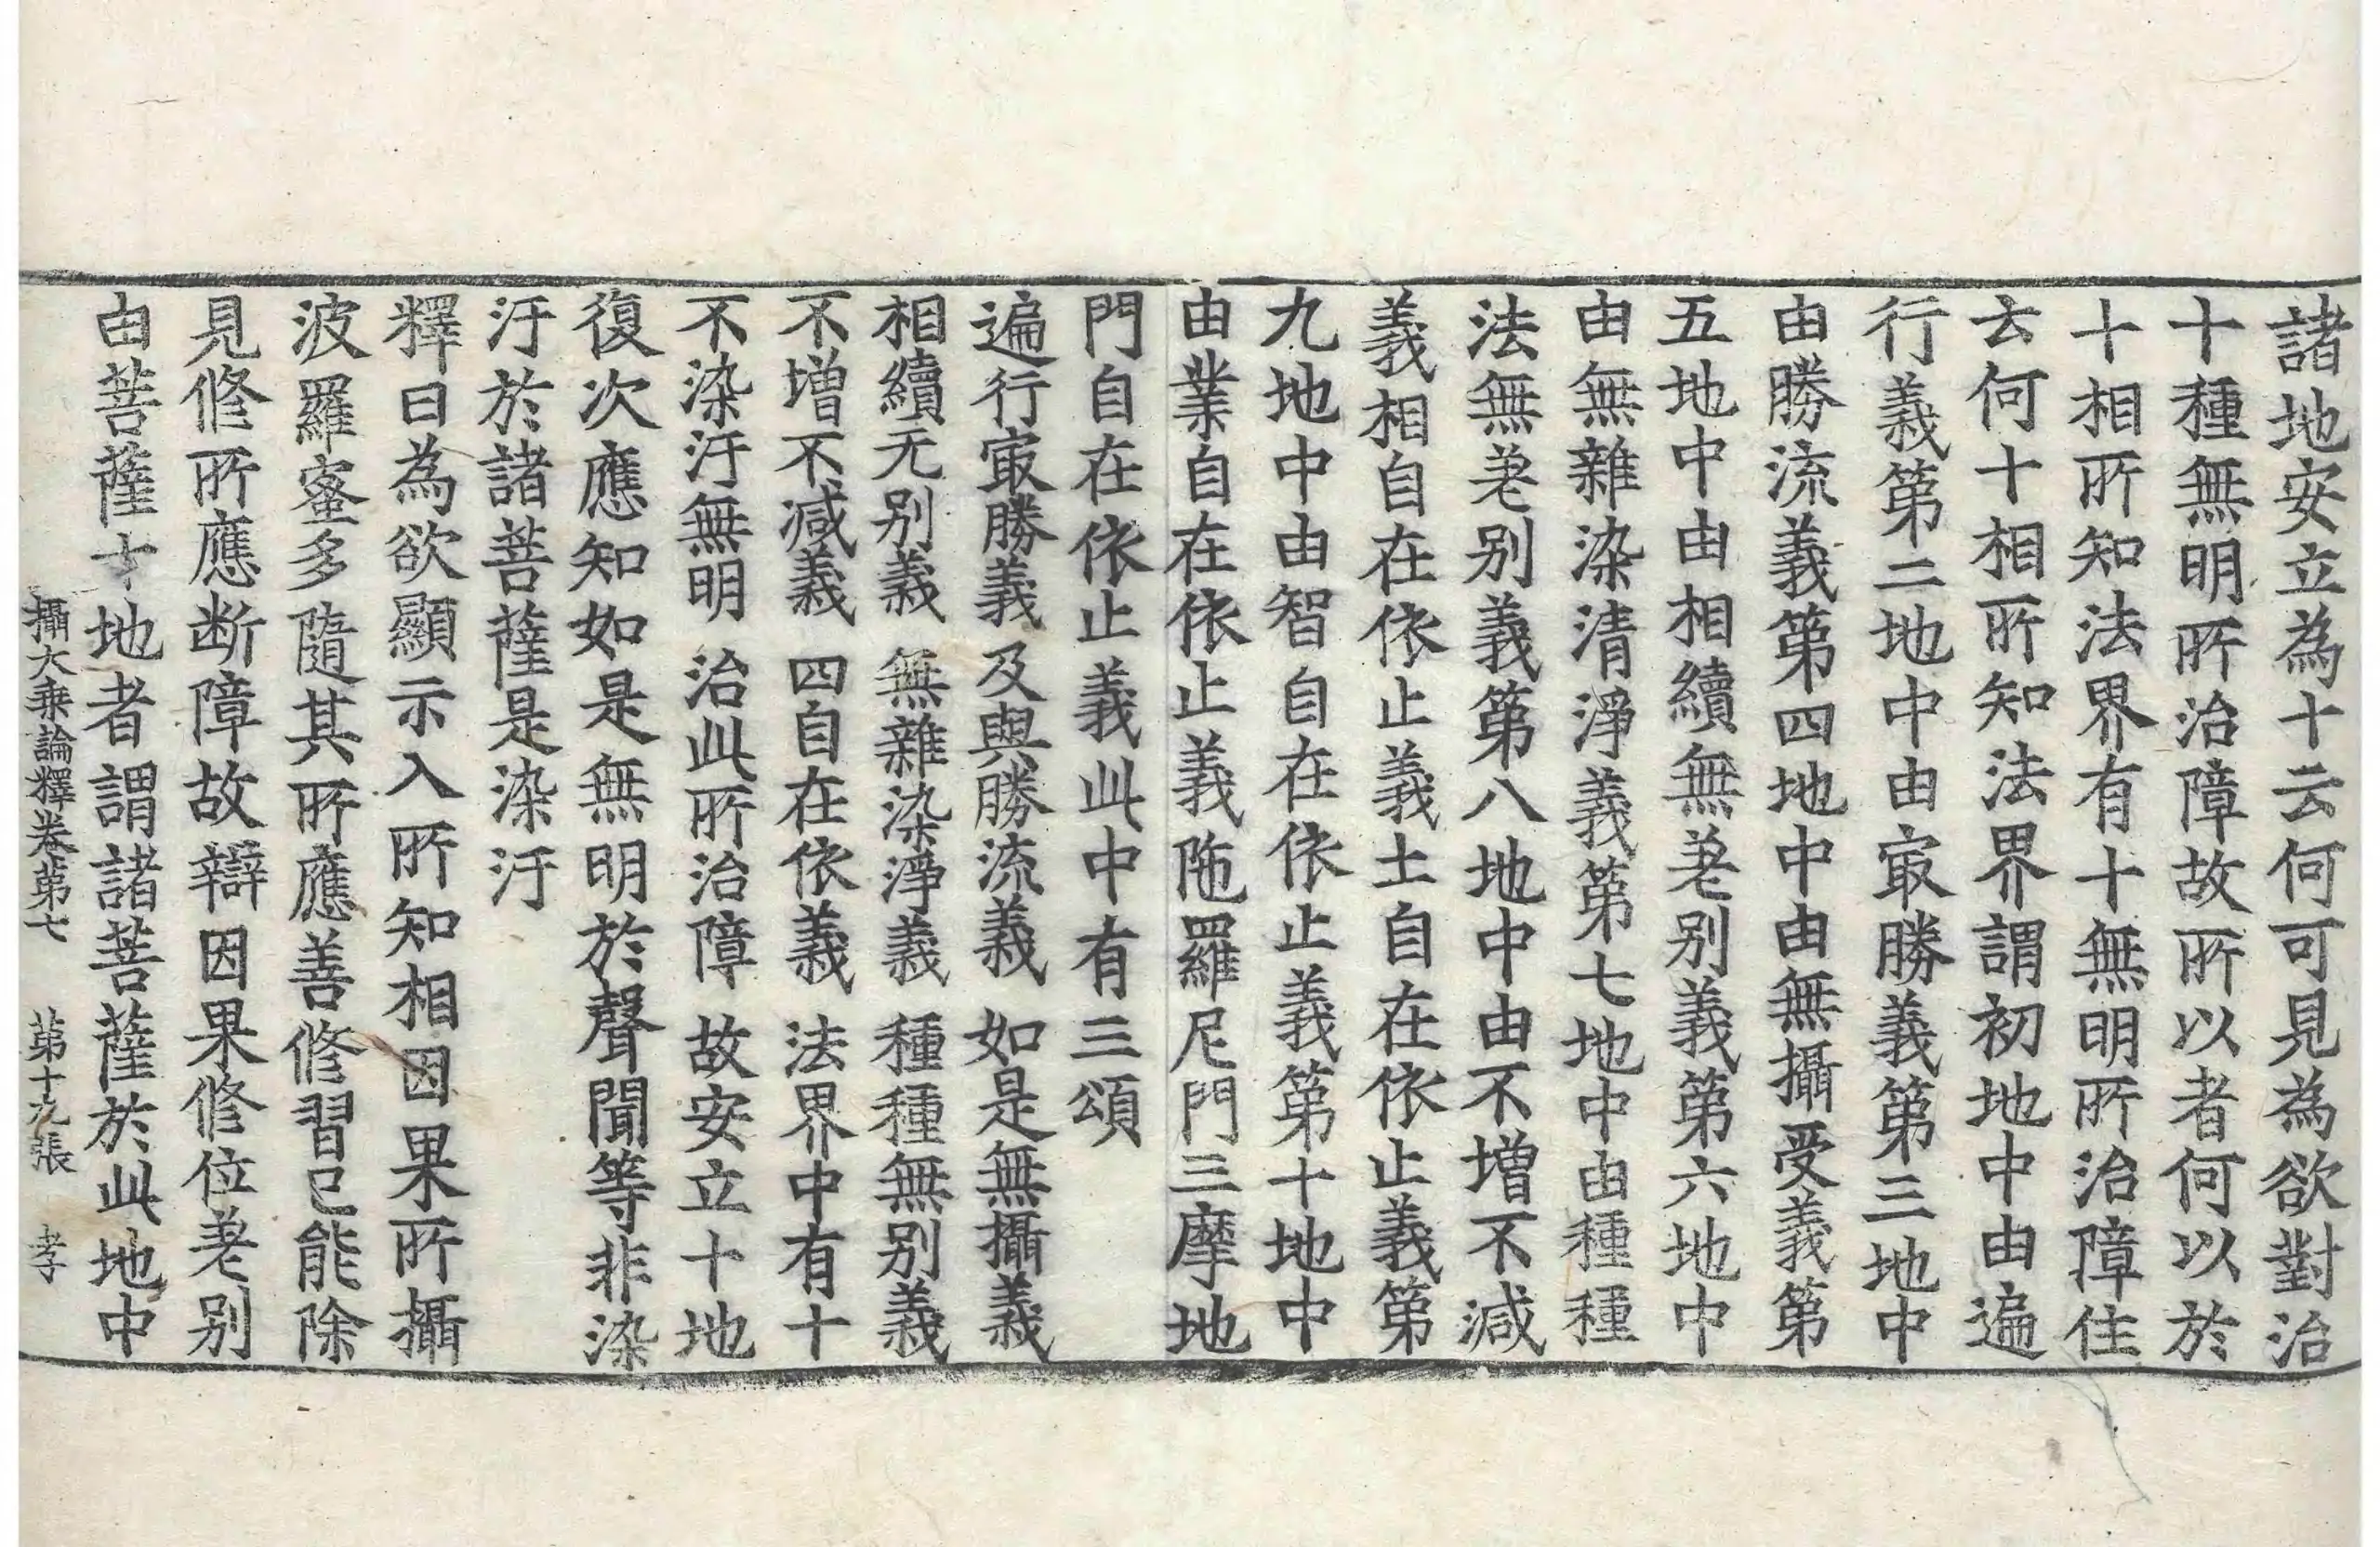 諸地安立為十云何可見為欲對治
十種無明所治障故所以者何以於
十相所知法界有十無明所治障住
云何十相所知法界謂初地中由遍
行義第二地中由㝡勝義第三地中
由勝流義第四地中由無攝受義第
五地中由相續無差别義第六地中
由無雜染清淨義第七地中由種種
法無差别義第八地中由不增不减
義相自在依止義土自在依止義第
九地中由智自在依止義第十地中
由業自在依止義陁羅尼門三摩地
門自在依止義此中有三頌
遍行㝡勝義 及與勝流義 如是無攝義
相續无别義 無雜染淨義 種種無别義
不增不减義 四自在依義 法界中有十
不染汙無明 治此所治障 故安立十地
復次應知如是無明於聲聞等非染
汙於諸菩薩是染汙
釋曰為欲顯示入所知相因果所攝
波羅蜜多隨其所應善修習已能除
見修所應断障故辯因果修位差别
由菩薩十地者謂諸菩薩於此地中
攝大乘論釋卷第七 第十九張 孝